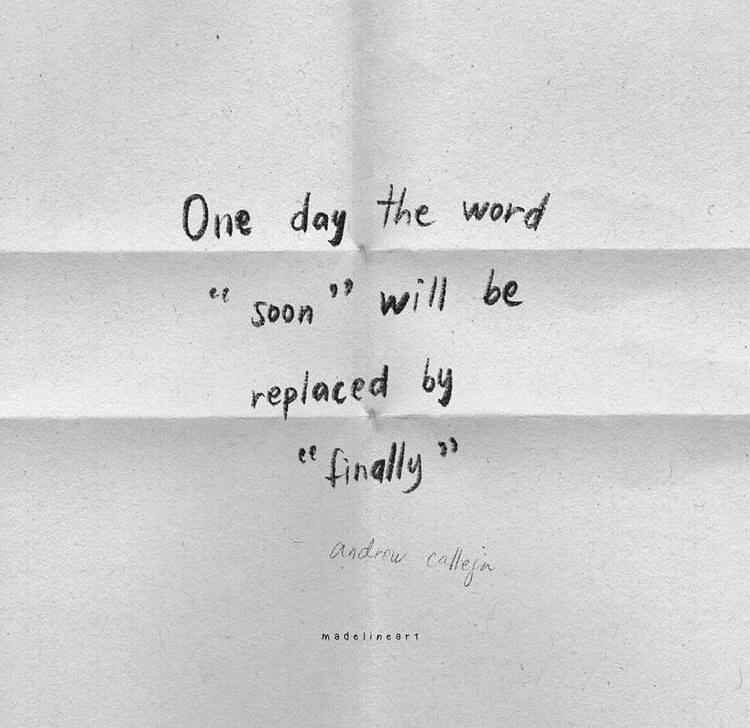 One day the word
“soon” will be
replaced by
“finally”
andrew calleja
madelineart